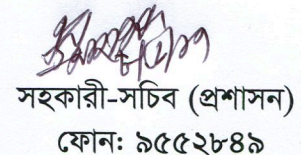 সহকারী-সচিব (প্রশাসন)
ফোন: ৯৫৫২৮৪৯